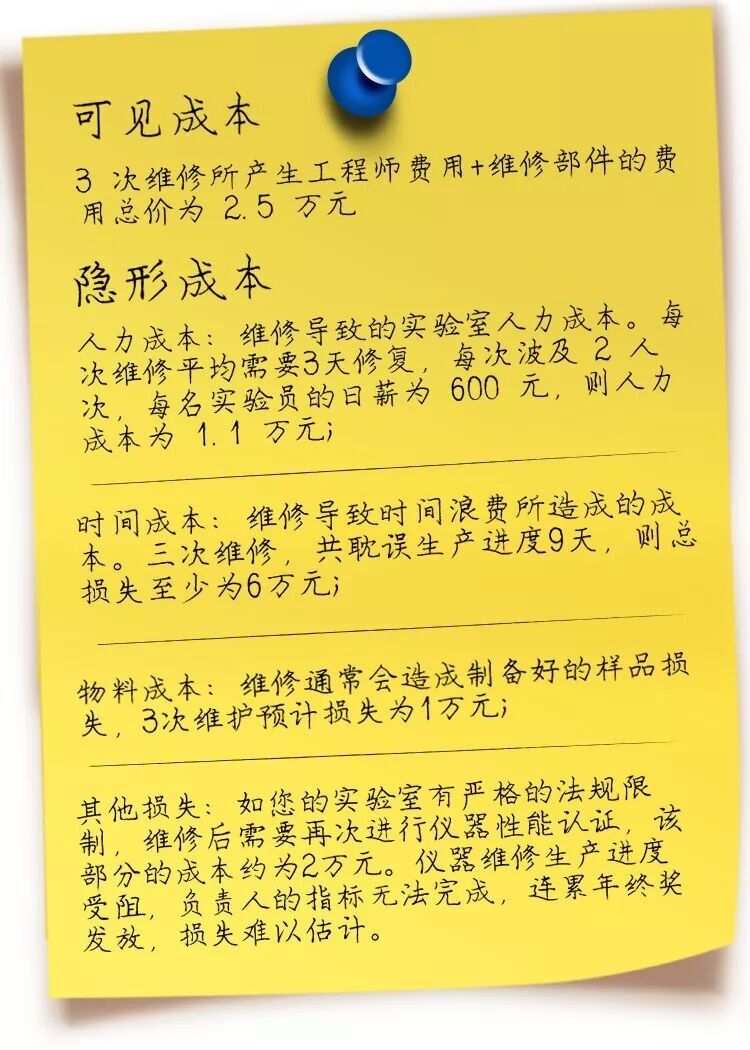 可见成本
3 次维修所产生工程师费用+维修部件的费
用总价为 2.5 万元
隐形成本
人力成本：维修导致的实验室人力成本。每
次维修平均需要3天修复，每次波及 2 人
次，每名实验员的日薪为 600 元，则人力
成本为 1.1 万元；
时间成本：维修导致时间浪费所造成的成
本。三次维修，共耽误生产进度9天，则总
损失至少为6万元；
物料成本：维修通常会造成制备好的样品损
失，3次维护预计损失为1万元；
其他损失：如您的实验室有严格的法规限
制，维修后需要再次进行仪器性能认证，该
部分的成本约为2万元。仪器维修生产进度
受阻，负责人的指标无法完成，连累年终奖
发放，损失难以估计。